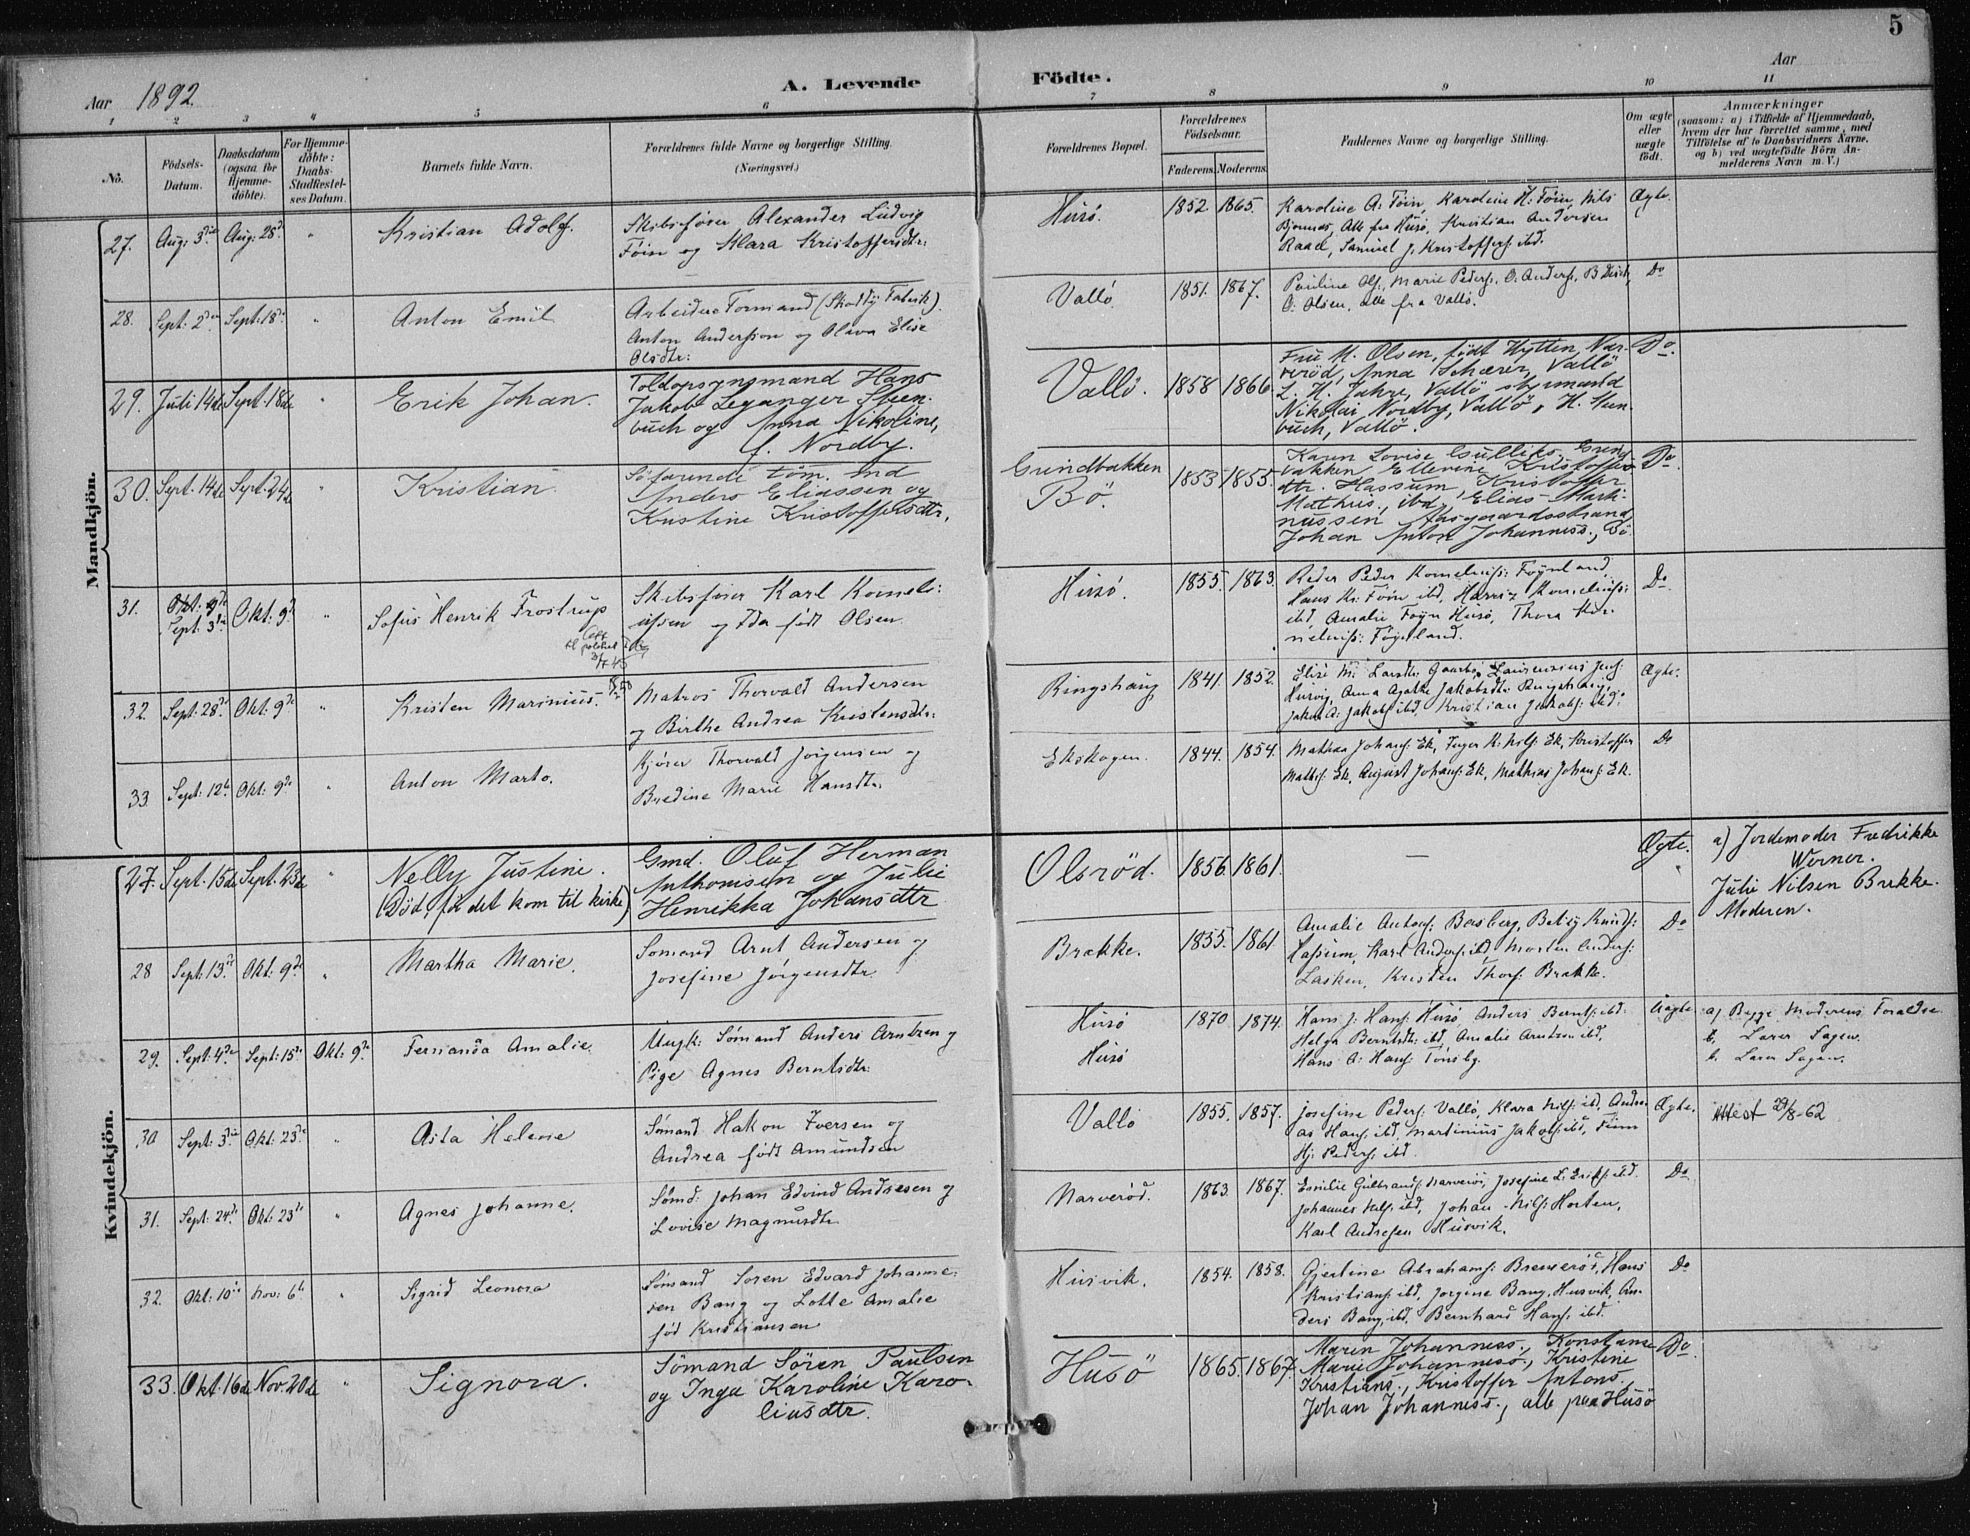 5
Aar 1892. A. Levende Födte. Aar
1 2 3 4 5 6 7 8 9 10 11
No.
Födsels-Datum.
Daabsdatum (ogsaa for Hjemmedöbte).
For Hjemmedöbte: Daabs-Stadfæstelses Datum.
Barnets fulde Navn.
Forældrenes fulde Navne og borgerlige Stilling. (Næringsvei.)
Forældrenes Bopæl.
Forældrenes Födselsaar. Faderens. Moderens.
Faddernes Navne og borgerlige Stilling.
Om ægte eller uægte födt.
Anmærkninger
(saasom: a) i Tilfælde af Hjemmedaab,
hvem der har forrettet samme, med
Tilföielse af to Daabsvidners Navne,
og b) ved uægtefödte Börn Anmelderens Navn m. V.)
Mandkjön.
27. Aug: 3die Aug: 28de " Kristian Adolf.
Skibsfører Alexander Ludvig
Föin og Klara Kristoffersdtr:
Husö. 1852 1865.
Karoline A. Föin, Karoline H. Föin, Nils
Bjonnes, Alle fra Husö, Kristian Andersen
Raael, Samuel J. Kristoffers ibd.
Ægte.
28. Sept: 2den Sept: 18de " Anton Emil
Arbeider Formand (Skoddy Fabrik).
Anton Anderssen og Olava Elise
Olsdtr:
Vallö. 1851. 1867.
Pauline Ols, Marie Peders, O. Anders,
O. Olsen, alle fra Vallö.
Do
29. Juli 14de Sept. 18de " Erik Johan.
Toldopsynsmand Hans
Jakob Leganger Steen-
buch og Anna Nikoline,
f. Nordby.
Vallö. 1858 1866
Fru M. Olsen, födt Hytten, Nar-
veröd, Anna Schærer, Vallö
L. H. Jahre, Vallö styrmand
Nikolai Nordby, Vallö, H. Steen-
buch, Vallö.
Do.
30. Sept. 14de Sept. 24de " Kristian.
Söfarende töm.
Anders Eliassen og
Kristine Kristoffersdtr.
Grindbakken
Bö.
1853 1855.
Karen Lovise Gulliks, Grind-
bakken Ellevine Kristoffers-
dtr. Hassum, Kristoffer
Mathis., ibd, Elias Marti-
nussen Aasgaardsstrand
Johan Anton Johanness., Bö.
Do.
31. Okt. 9de Sept: 3die Okt: 9de " Sofus Henrik Frostrup
Skibsfører Karl Korneli-
ussen og Ida født Olsen.
Husö. 1855. 1863.
Reder Peder Kornelius: Föynland,
Hans Kr. Föin ibd, Harris Kornelius:
ibd Amalie Föyn Husö, Thora Kor-
nelius: Föynland.
Do.
32. Sept: 28de Okt: 9de " Kristen Marinius.
Matros Thorvald Andersen
og Birthe Andrea Kristensdtr:
Ringshaug 1841. 1852.
Elise M. Larsdtr. Gaarbo, Laurenzius Jens:
Husvig, Anna Agathe Jakobsdtr. Ringshaug,
Jakob A: Jakobs ibd, Kristian Jakobs: ibd.
Ægte.
33 Sept: 12te Okt: 9de " Anton Marto.
Kjører Thorvald Jörgensen og
Bredine Marie Hansdtr.
Ekskogen. 1844. 1854.
Mathea Johans: Ek, Inger K. Nils: Ek, Kristoffer
Maths: Ek, August Johans: Ek, Mathias Johans: Ek.
Do
Kvindekjön.
27. Sept. 15de Sept. 23de " Nelly Justine.
(Död, för det kom til kirke)
Gmd. Oluf Herman
Anthonisen og Julie
Henrikka Johansdtr.
Olsröd. 1856 1861. —
Ægte.
a) Jordemoder Fredrikke
Werner.
Julie Nilsen Brekke.
Moderen.
28 Sept: 13de Okt: 9de " Martha Marie.
Sømand Arnt Andersen og
Josefine Jörgensdtr.
Brække. 1855. 1861.
Amalie Antons: Bersberg, Betsy Knuds:
Hassum, Karl Anders: ibd, Morten Anders:
Lasken, Kristen Thors: Brække.
Do
29. Sept: 4de Sept: 15de Okt: 9de Fernanda Amalie.
Ungk: Sømand Anders Arntzen og
Pige Agnes Berntsdtr:
Husö
Husö
1870 1874.
Hans J: Hans: Husö Anders Bernts: ibd:
Helga Berntsdtr: ibd, Amalie Arntsen ibd,
Hans A: Hans: Tönsbg.
Uægte
a) Begge Moderens Forældre
b, Lærer Sagen.
b. Lærer Sagen.
30 Sept: 3die Okt: 23de " Asta Helene
Sømand Hakon Iversen og
Andrea født Amundsen
Vallö 1855. 1857.
Josefine Peders: Vallö, Klara Nils: ibd, Andre-
as Hans: ibd, Martinius Jakobs: ibd, Finn
Hj. Peders: ibd.
Ægte.
Attest 29/8-62
31. Sept: 24de Okt: 23de " Agnes Johanne.
Sømd: Johan Edvind Andresen og
Lovise Magnusdtr.
Narveröd. 1863. 1867.
Emilie Gulbrands: Narveröd, Josefine L. Eriks: ibd.
Johannes Nils: ibd, Johan Nils: Horten,
Karl Andresen Husvik.
Do
32. Okt: 10de Nov: 6te " Sigrid Leonora
Sømand Søren Edvard Johanne-
sen Bang og Lotte Amalie
fød Kristiansen
Husvik. 1854. 1858.
Gjertine Abrahams: Breverød, Hans
Kristians: ibd, Jorgine Bang, Husvik, An-
ders Bang ibd, Bernhard Hans: ibd.
Do
33. Okt. 16de Nov. 20de " Signora.
Sömand Sören Paulsen
og Inga Karoline Karo-
liusdtr.
Husö 1865. 1867.
Maren Johanness., Konstanse
Marie Johanness., Kristine
Kristians., Kristoffer Antons.,
Johan Johanness., alle paa Husö
Do.